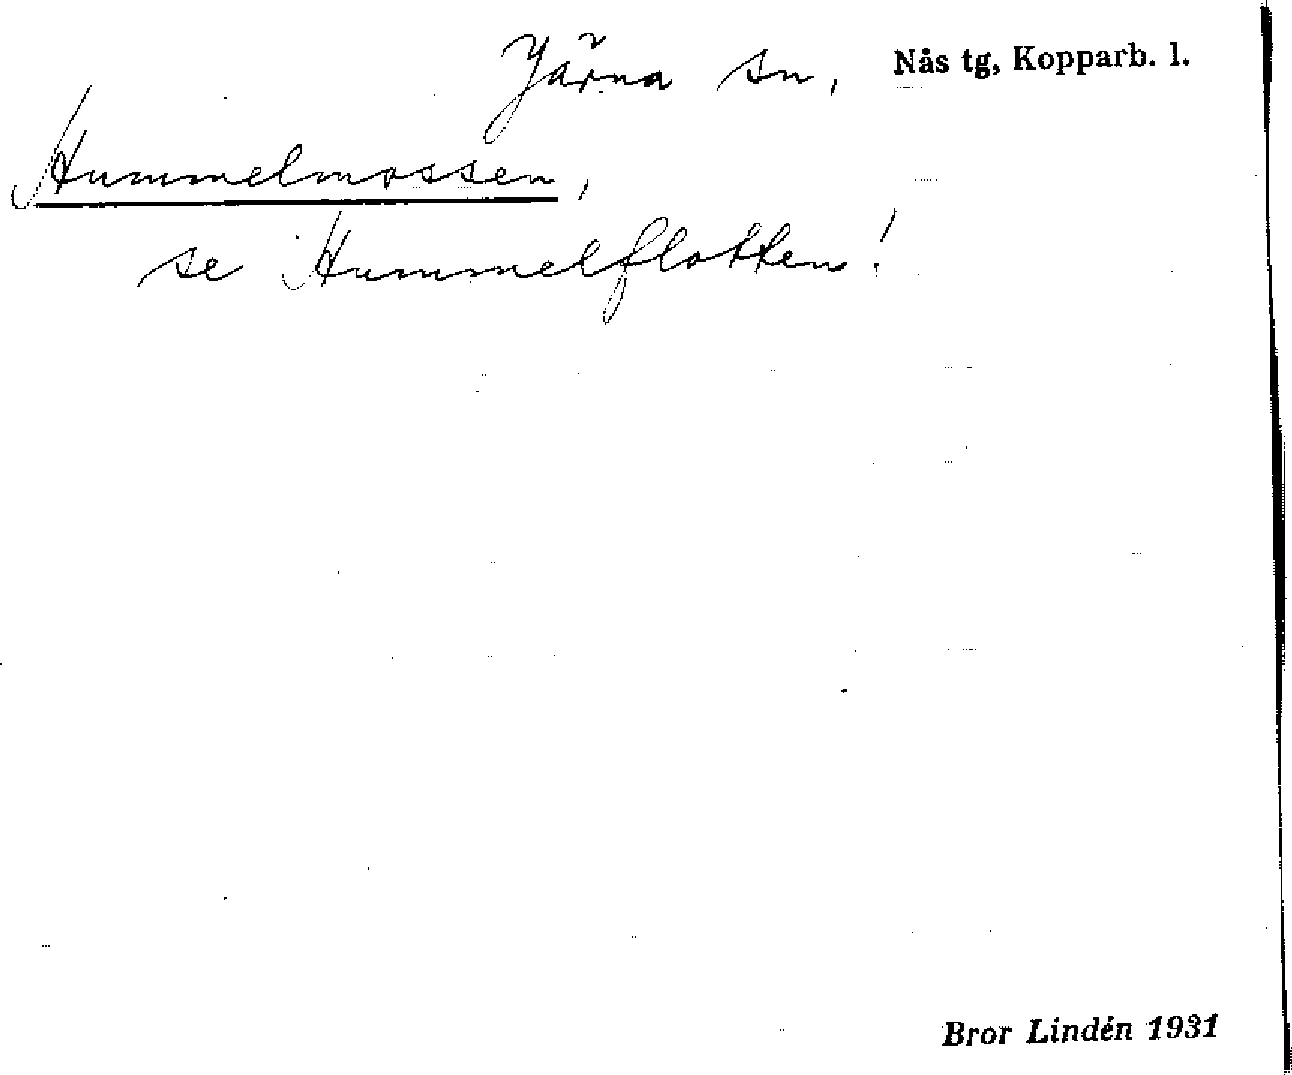 Järna sn, Nås tg, Kopparb. l.
Hummelmossen,
se Hummelflotten!
Bror Lindén 1931